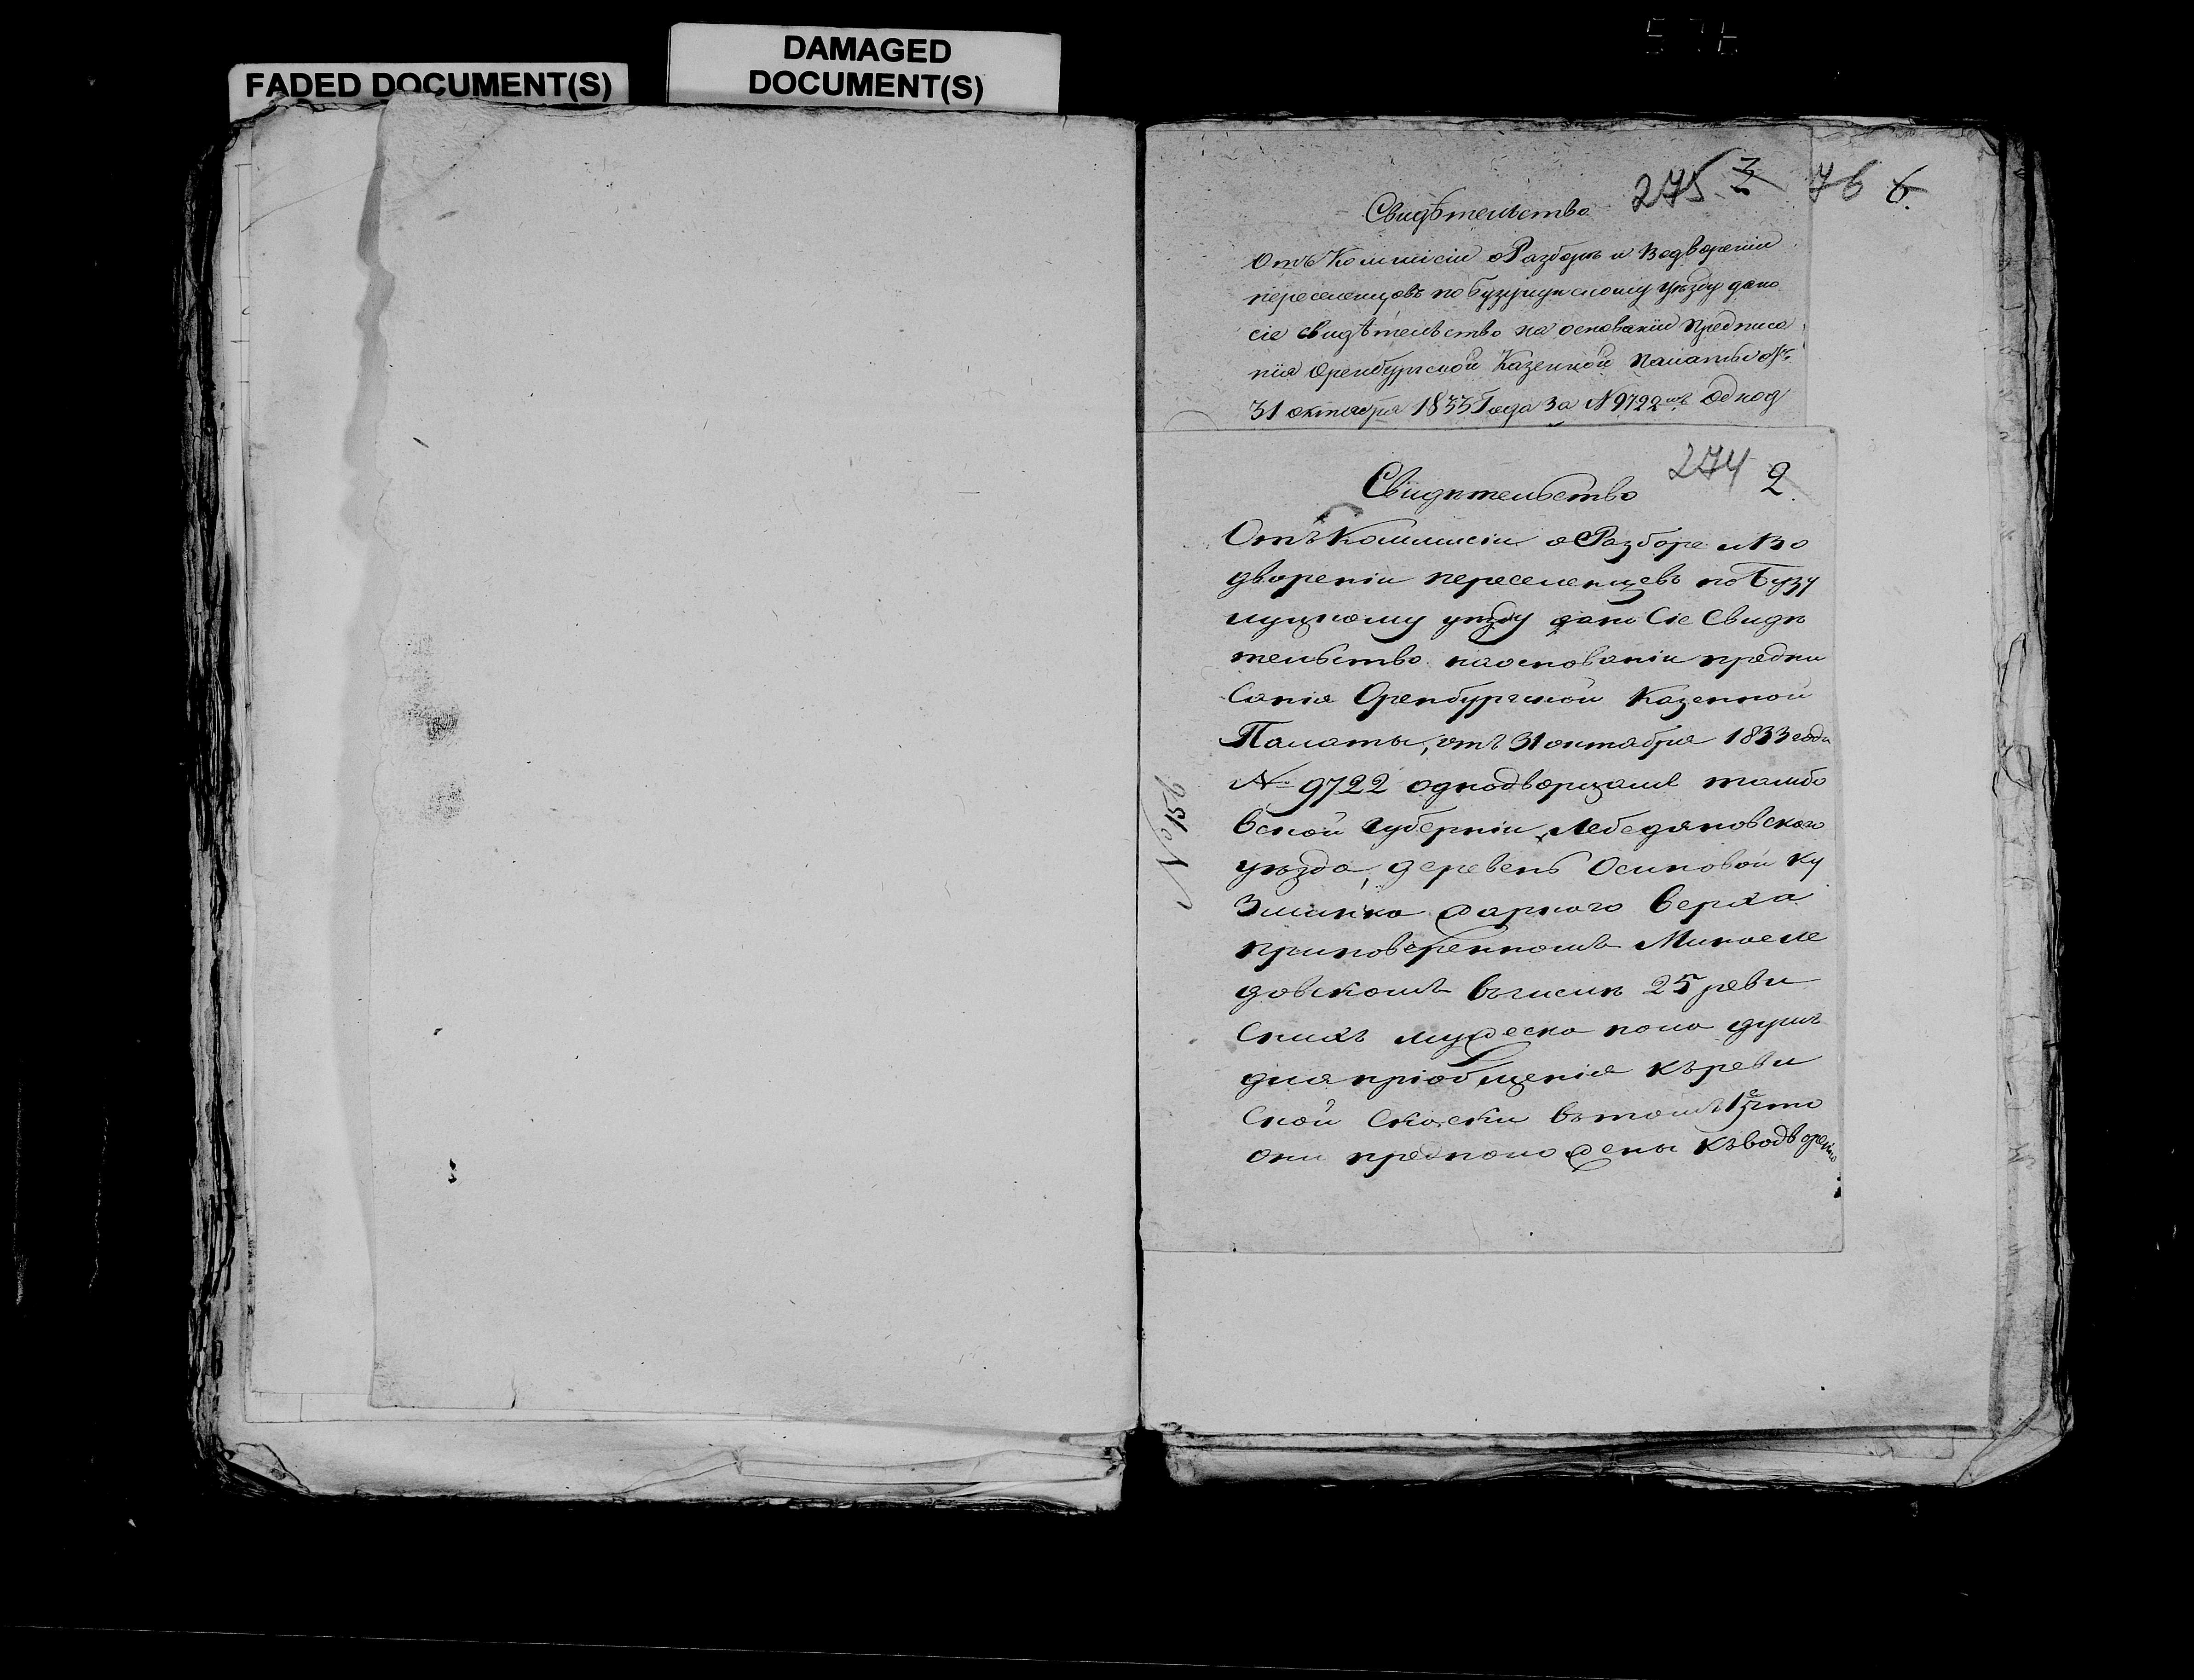 FADED DOCUMENT(S)
DAMAGED
DOCUMENT(S)
275 3 76 6.
Свидѣтельство
Отъ Коммисіи о Разборѣ и Водвореніи
переселенцовъ по бузулукскому уѣзду дано
сіе свидѣтельство на основаніи предписа
нія Оренбургской Казенной Палаты отъ
31 октября 1833 Года За № 9722мъ Однод
274 2.
Свидѣтельство
Отъ Коммисіи о Разборе и Во
двореніи переселенцевъ по Бузу
луцкому уѣзду дано Сіе Свидѣ
тельство на основаніи предпи
Санія Оренбургской Казенной
Палаты, отъ 31 октября 1833 года
№ 9722 однодворцамъ тамбо
вской губерніи Лебедяновскаго
уѣзда, деревень Осиповой Ку
Зминка Жарнаго Верха
при поверенномъ
въчислѣ 25 реви
Скихъ мужеска пола душъ
для пріобщенія къ реви
Ской Скаски въ томъ что
они предположены къ водворенію
№ 152